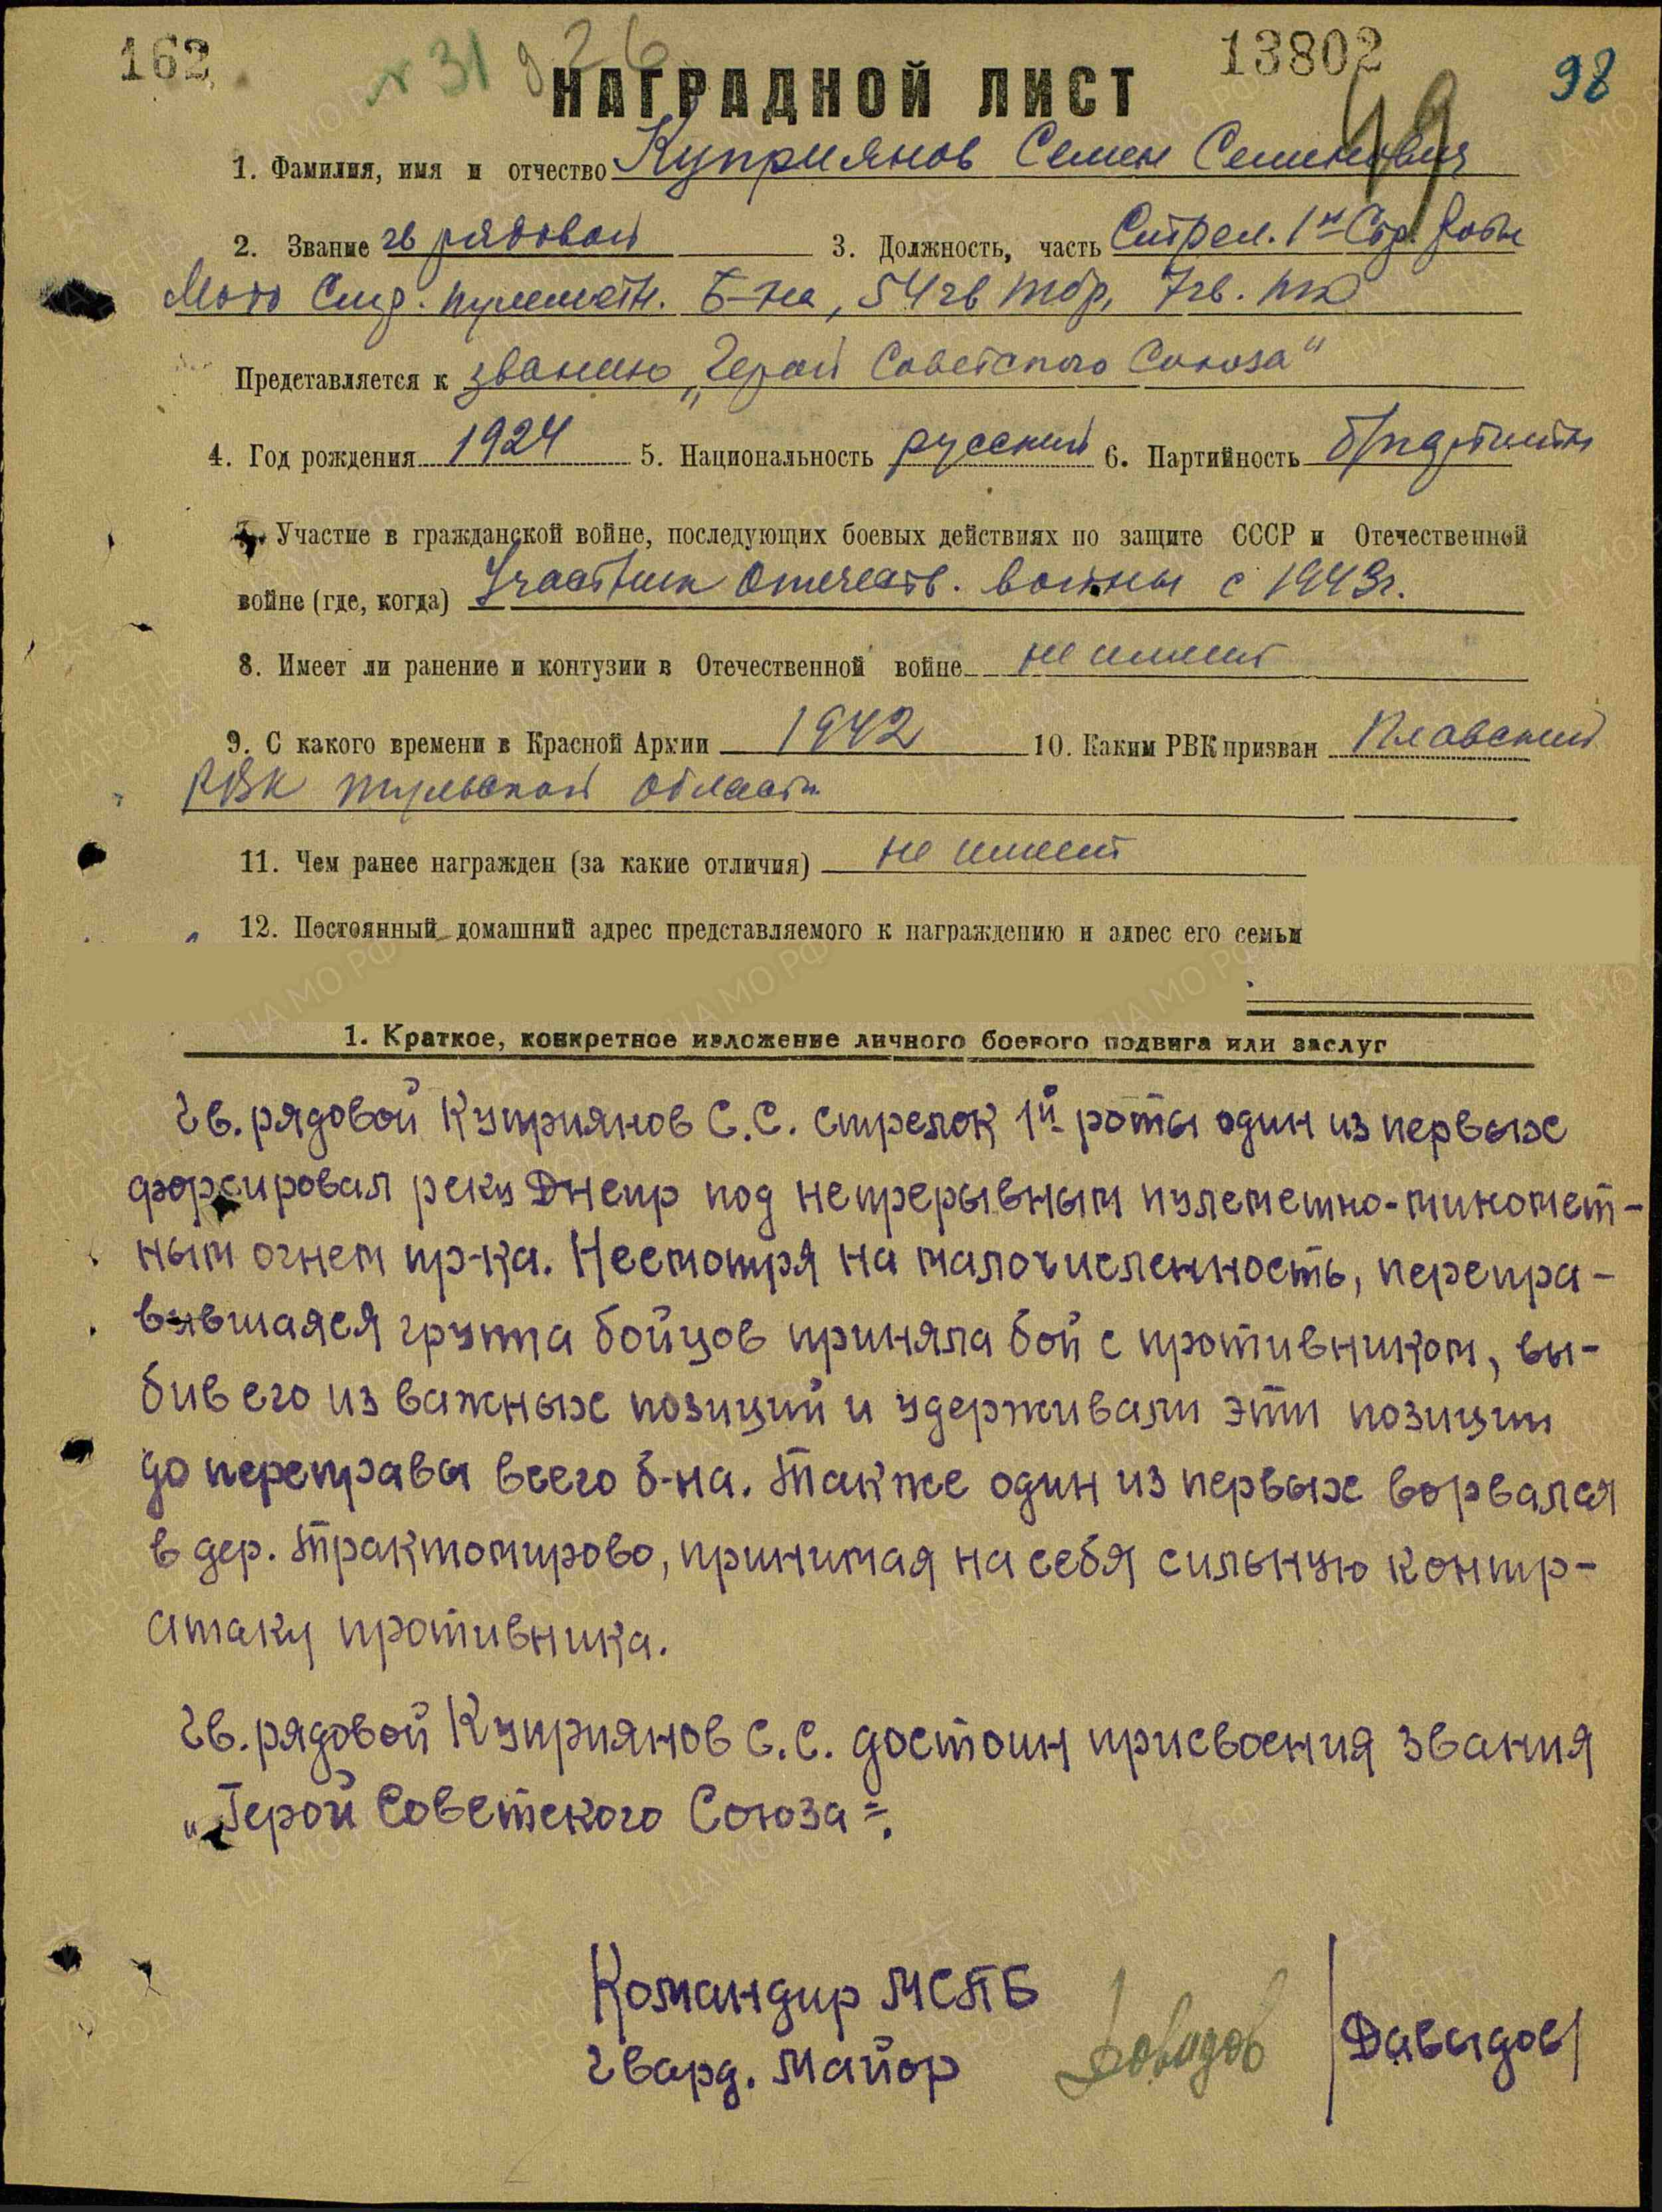 162
№ 31 д 26
13802
98
49
НАГРАДНОЙ ЛИСТ
1. Фамилия, имя и отчество Куприянов Семен Семенович
2. Звание гв рядовой 3. Должность, часть Стрел. 1й Стр. роты
Мото Стр. пулеметн. б-на, 54 гв тбр, 7 гв. тк
Представляется к званию „Герой Советского Союза"
4. Год рождения 1924 5. Национальность русский 6. Партийность б/партийн
7. Участие в гражданской войне, последующих боевых действиях по защите СССР и Отечественной
войне (где, когда) Участник Отечеств. войны с 1943г.
8. Имеет ли ранение и контузии в Отечественной войне не имеет
9. С какого времени в Красной Армии 1942 10. Каким РВК призван Плавский
РВК тульской области
11. Чем ранее награжден (за какие отличия) не имеет
12. Постоянный домашний адрес представляемого к награждению и адрес его семьи
1. Краткое, конкретное изложение личного боевого подвига или заслуг
Гв. рядовой Куприянов С.С. стрелок 1й роты один из первых
форсировал реку Днепр под непрерывным пулеметно-миномет-
ным огнем пр-ка. Несмотря на малочисленность, перепра-
вившаяся группа бойцов приняла бой с противником, вы-
бив его из важных позиций и удерживали эти позиции
до переправы всего б-на. Также один из первых ворвался
в дер. Трактомирово, принимая на себя сильную контр-
атаку противника.
Гв. рядовой Куприянов С.С. достоин присвоения звания
„Герой Советского Союза".
Командир МСПБ
Гвард. Майор Давыдов /Давыдов/